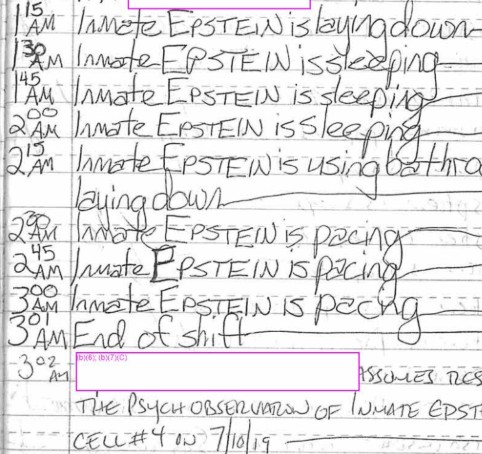 1:15 AM Inmate EPSTEIN is laying down
1:30 AM Inmate EPSTEIN is sleeping
1:45 AM Inmate EPSTEIN is sleeping
2:00 AM Inmate EPSTEIN is sleeping
2:15 AM Inmate EPSTEIN is using bathro
laying down
2:30 AM Inmate EPSTEIN is pacing
2:45 AM Inmate EPSTEIN is pacing
3:00 AM Inmate EPSTEIN is pacing
3:01 AM End of shift
(b)(6); (b)(7)(C)
3:02 AM ASSUMES RES
THE PSYCH OBSERVATION OF INMATE EPST
CELL #4 ON 7/10/19